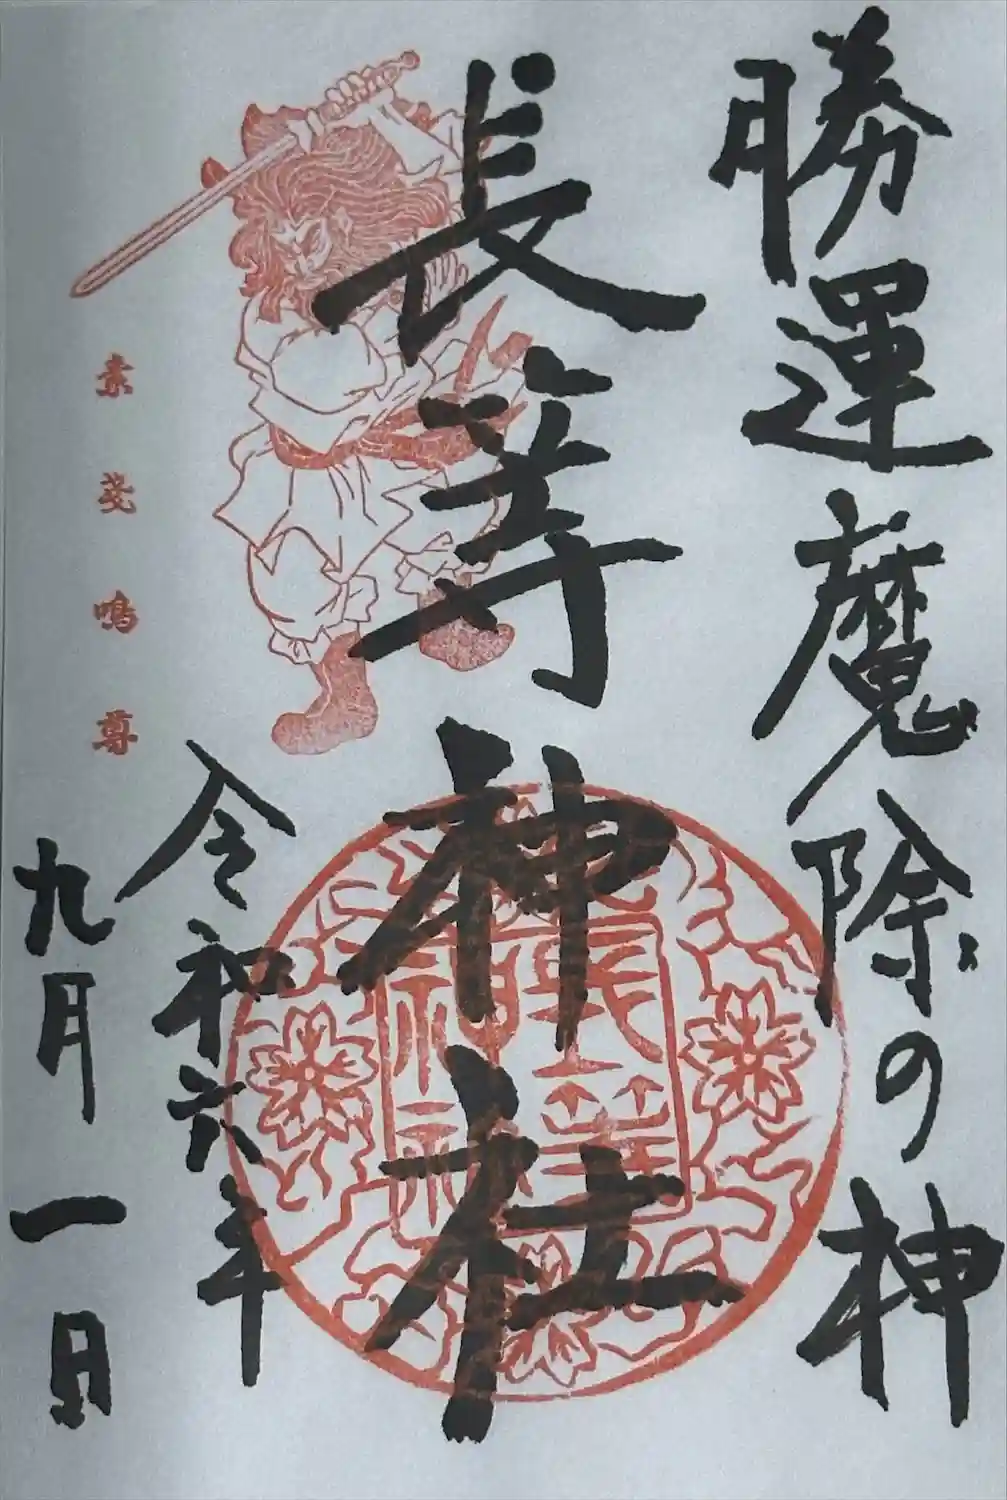 勝運魔除の神
長等神社
素戔嗚尊
令和六年
九月一日